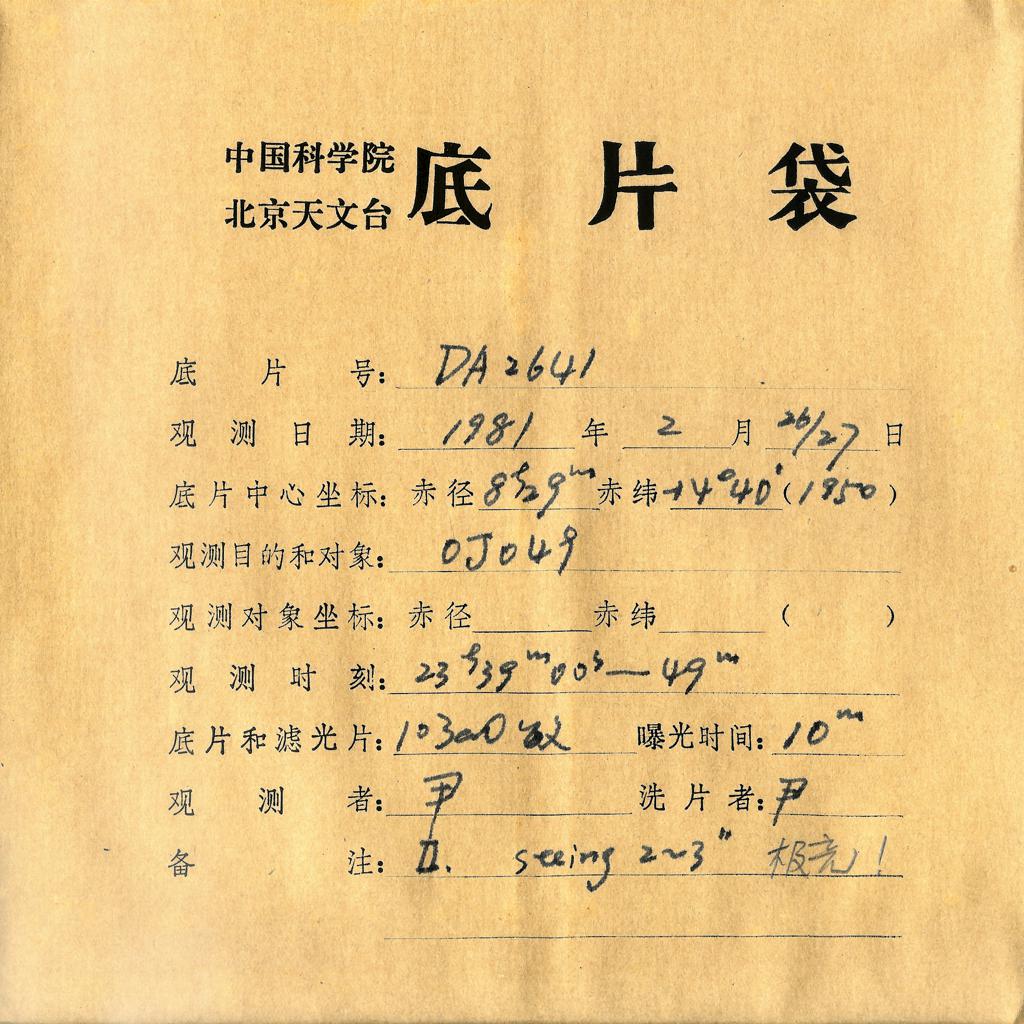 中国科学院
北京天文台
底片袋
底片号: DA2641
观测日期: 1981年2月26/27日
底片中心坐标: 赤径 8ʰ29ᵐ 赤纬 +14°40′(1950)
观测目的和对象: OJ049
观测对象坐标: 赤径 赤纬 ( )
观测时刻: 23ʰ39ᵐ00ˢ—49ᵐ
底片和滤光片: 103aO 曝光时间: 10ᵐ
观测者: 尹 洗片者: 尹
备注: II. seeing 2~3″ 极亮!